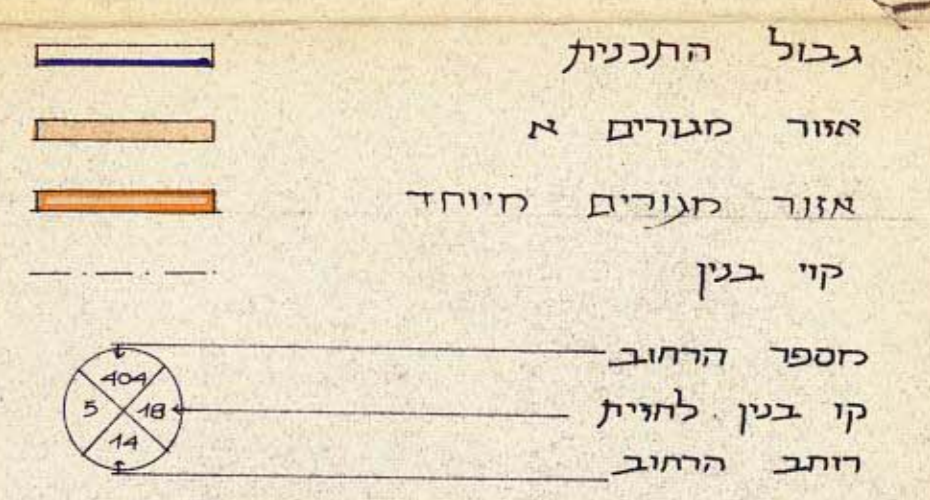 גבול התכנית
אזור מגורים א
אזור מגורים מיוחד
קוי בנין
מספר הרחוב
404
קו בנין לחזית
5 18
רוחב הרחוב
14